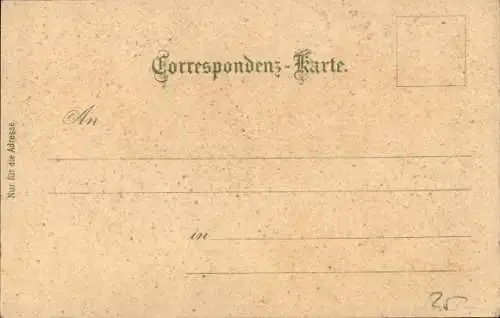 Correspondenz-Karte.
An
in
Nur für die Adresse.
25